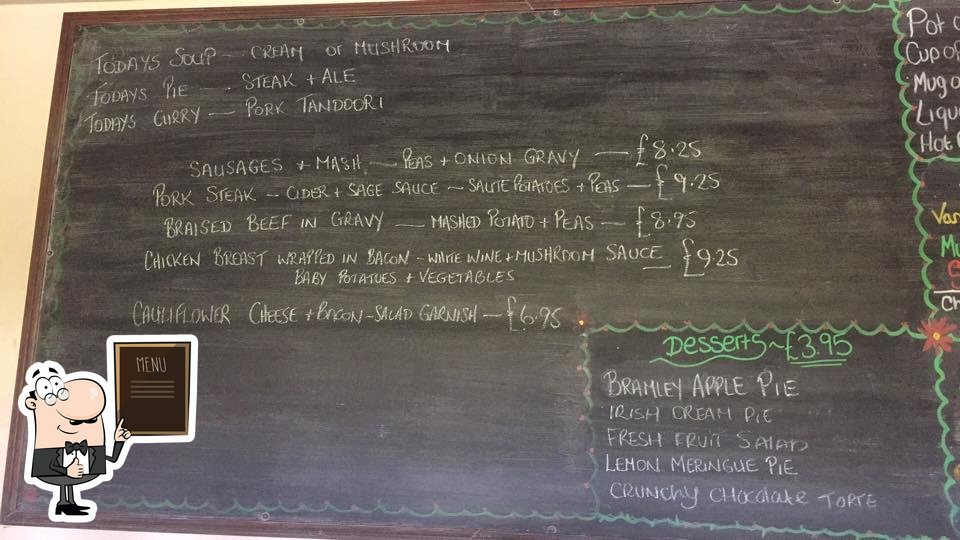 TODAYS SOUP — CREAM OF MUSHROOM
TODAYS PIE — STEAK + ALE
TODAYS CURRY — PORK TANDOORI
SAUSAGES + MASH — PEAS + ONION GRAVY — £8.25
PORK STEAK — CIDER + SAGE SAUCE — SAUTE POTATOES + PEAS — £9.25
BRAISED BEEF IN GRAVY — MASHED POTATO + PEAS — £8.95
CHICKEN BREAST WRAPPED IN BACON - WHITE WINE + MUSHROOM SAUCE — £9.25
BABY POTATOES + VEGETABLES
CAULIFLOWER CHEESE + BACON - SALAD GARNISH — £6.95
MENU
DESSERTS ~ £3.95
BRAMLEY APPLE PIE
IRISH CREAM PIE
FRESH FRUIT SALAD
LEMON MERINGUE PIE
CRUNCHY CHOCOLATE TORTE
Pot
Cup of
Mug
Hot